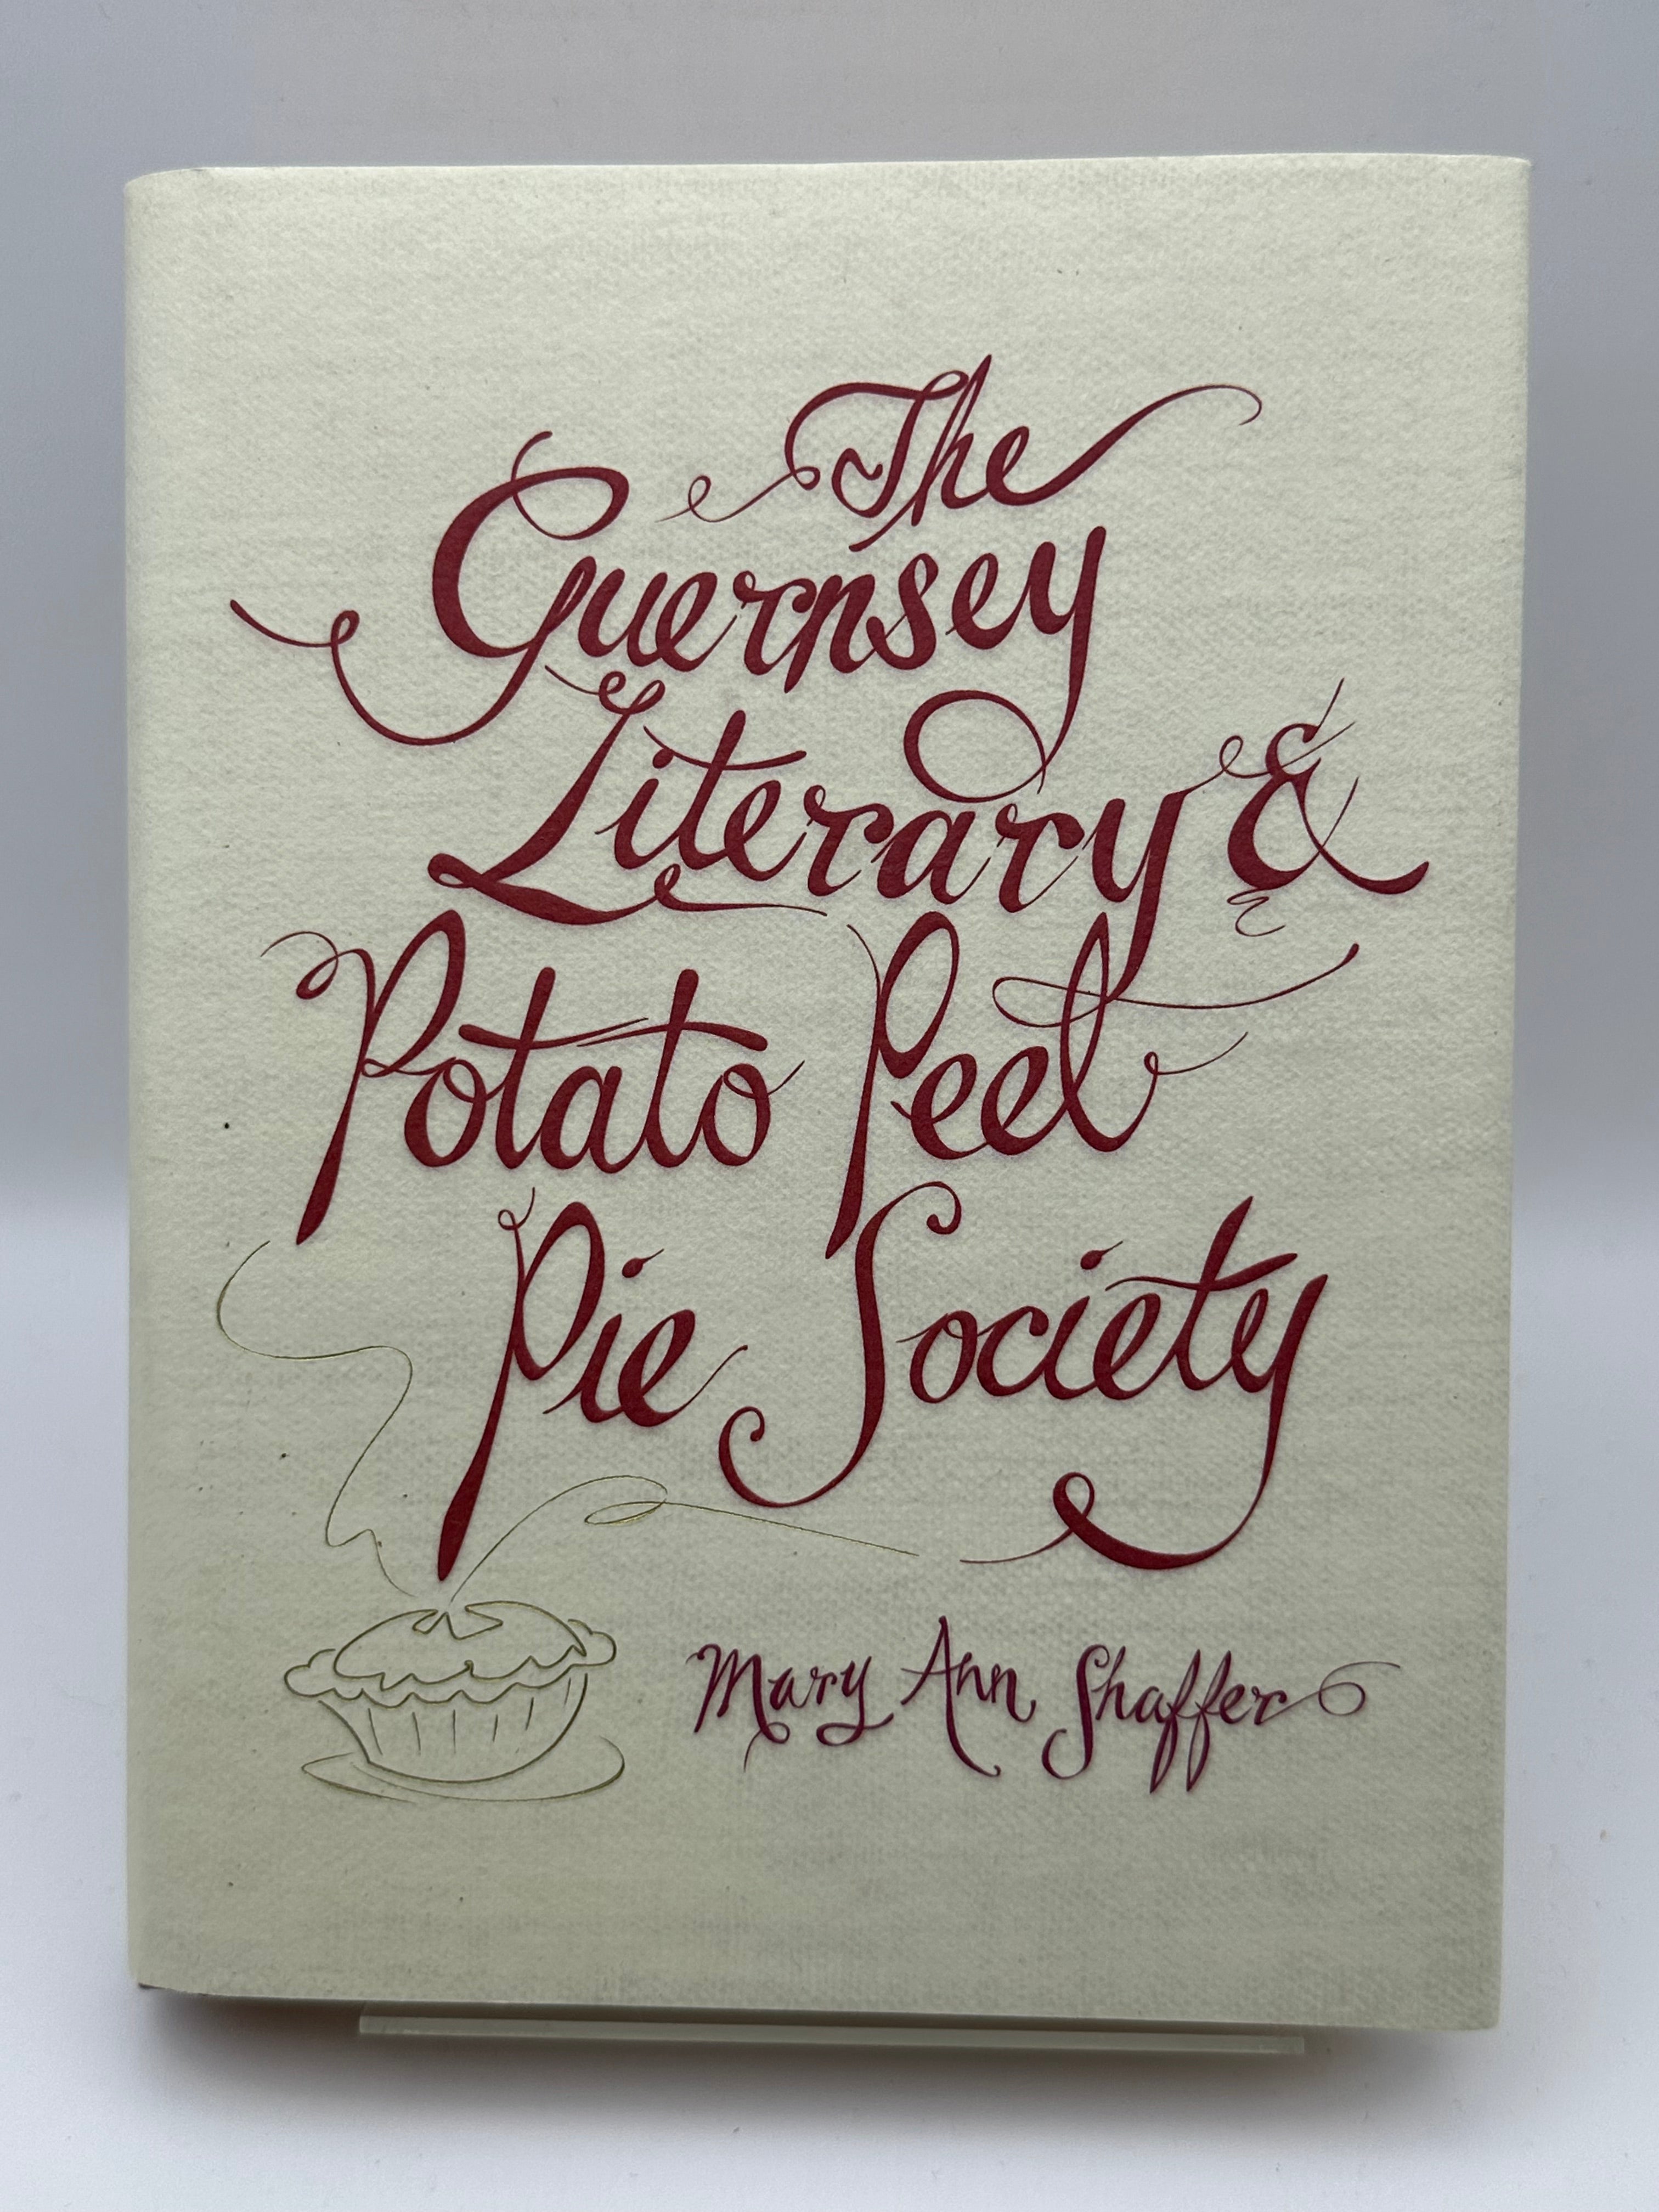 The
Guernsey
Literary &
Potato Peel
Pie Society
Mary Ann Shaffer